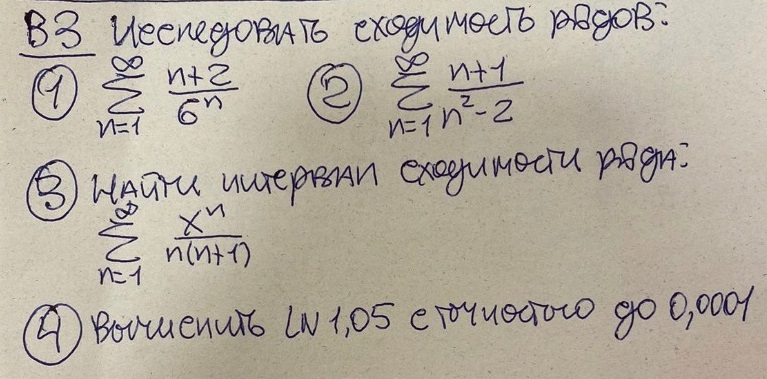 В3 Исследовать сходимость рядов:
① ∑_{n=1}^{∞} (n+2)/6^n ② ∑_{n=1}^{∞} (n+1)/(n²-2)
③ Найти интервал сходимости ряда:
∑_{n=1}^{∞} x^n/(n(n+1))
④ Вычислить LN 1,05 с точностью до 0,0001